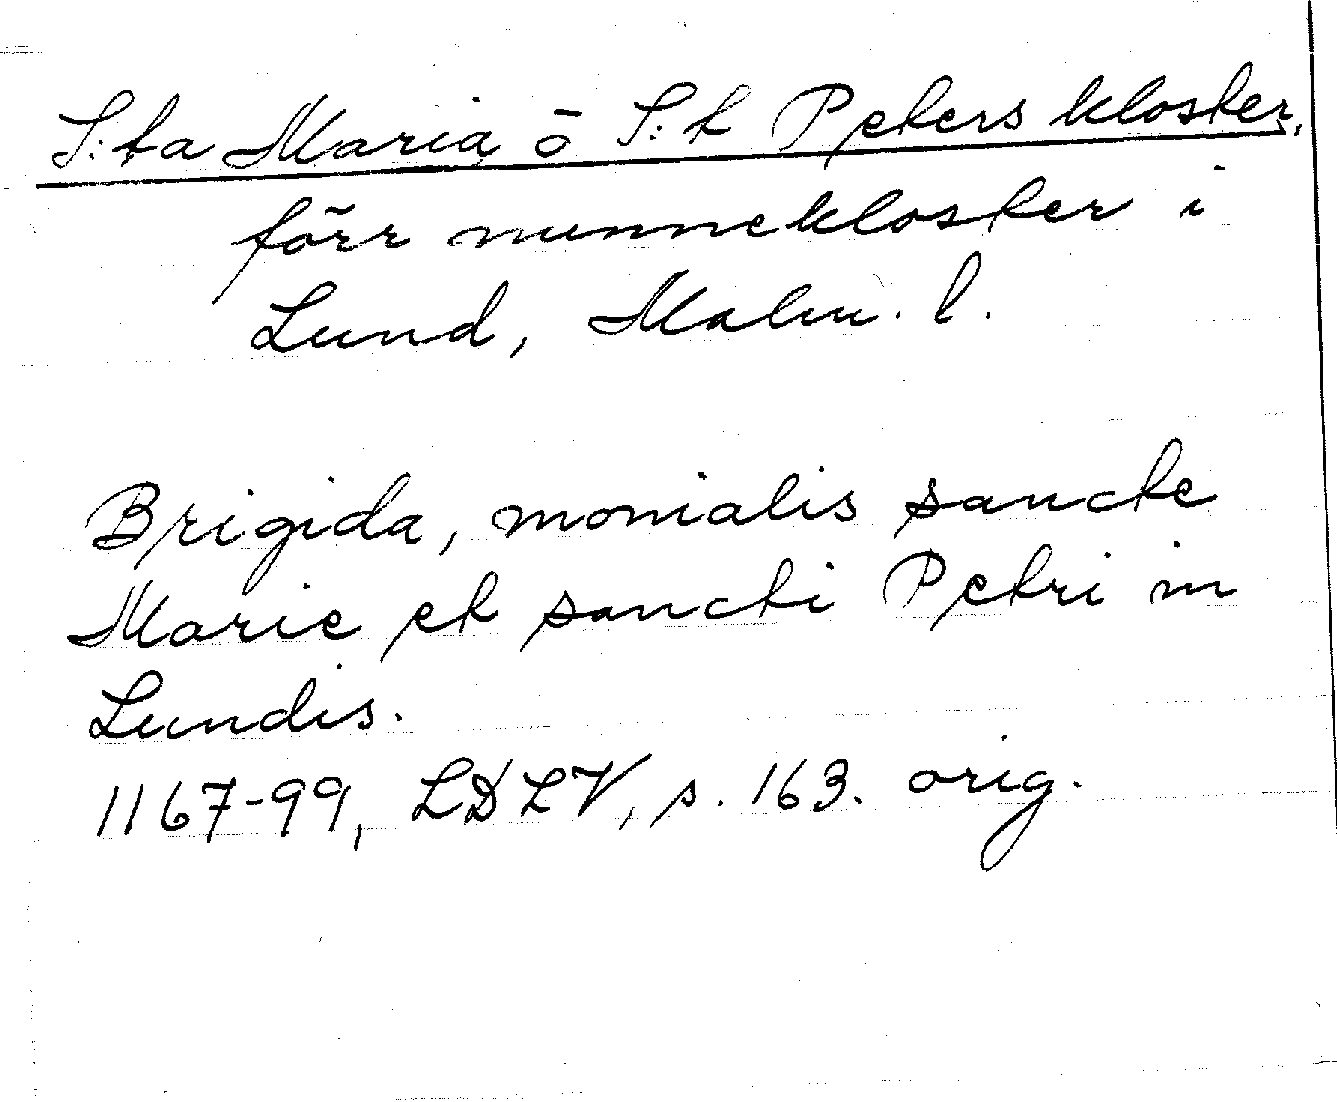 S:ta Maria o S:t Peters kloster,
förr nunnekloster i
Lund, Malm. l.
Brigida, monialis sancte
Marie et sancti Petri in
Lundis.
1167-99, LDLV, s. 163. orig.